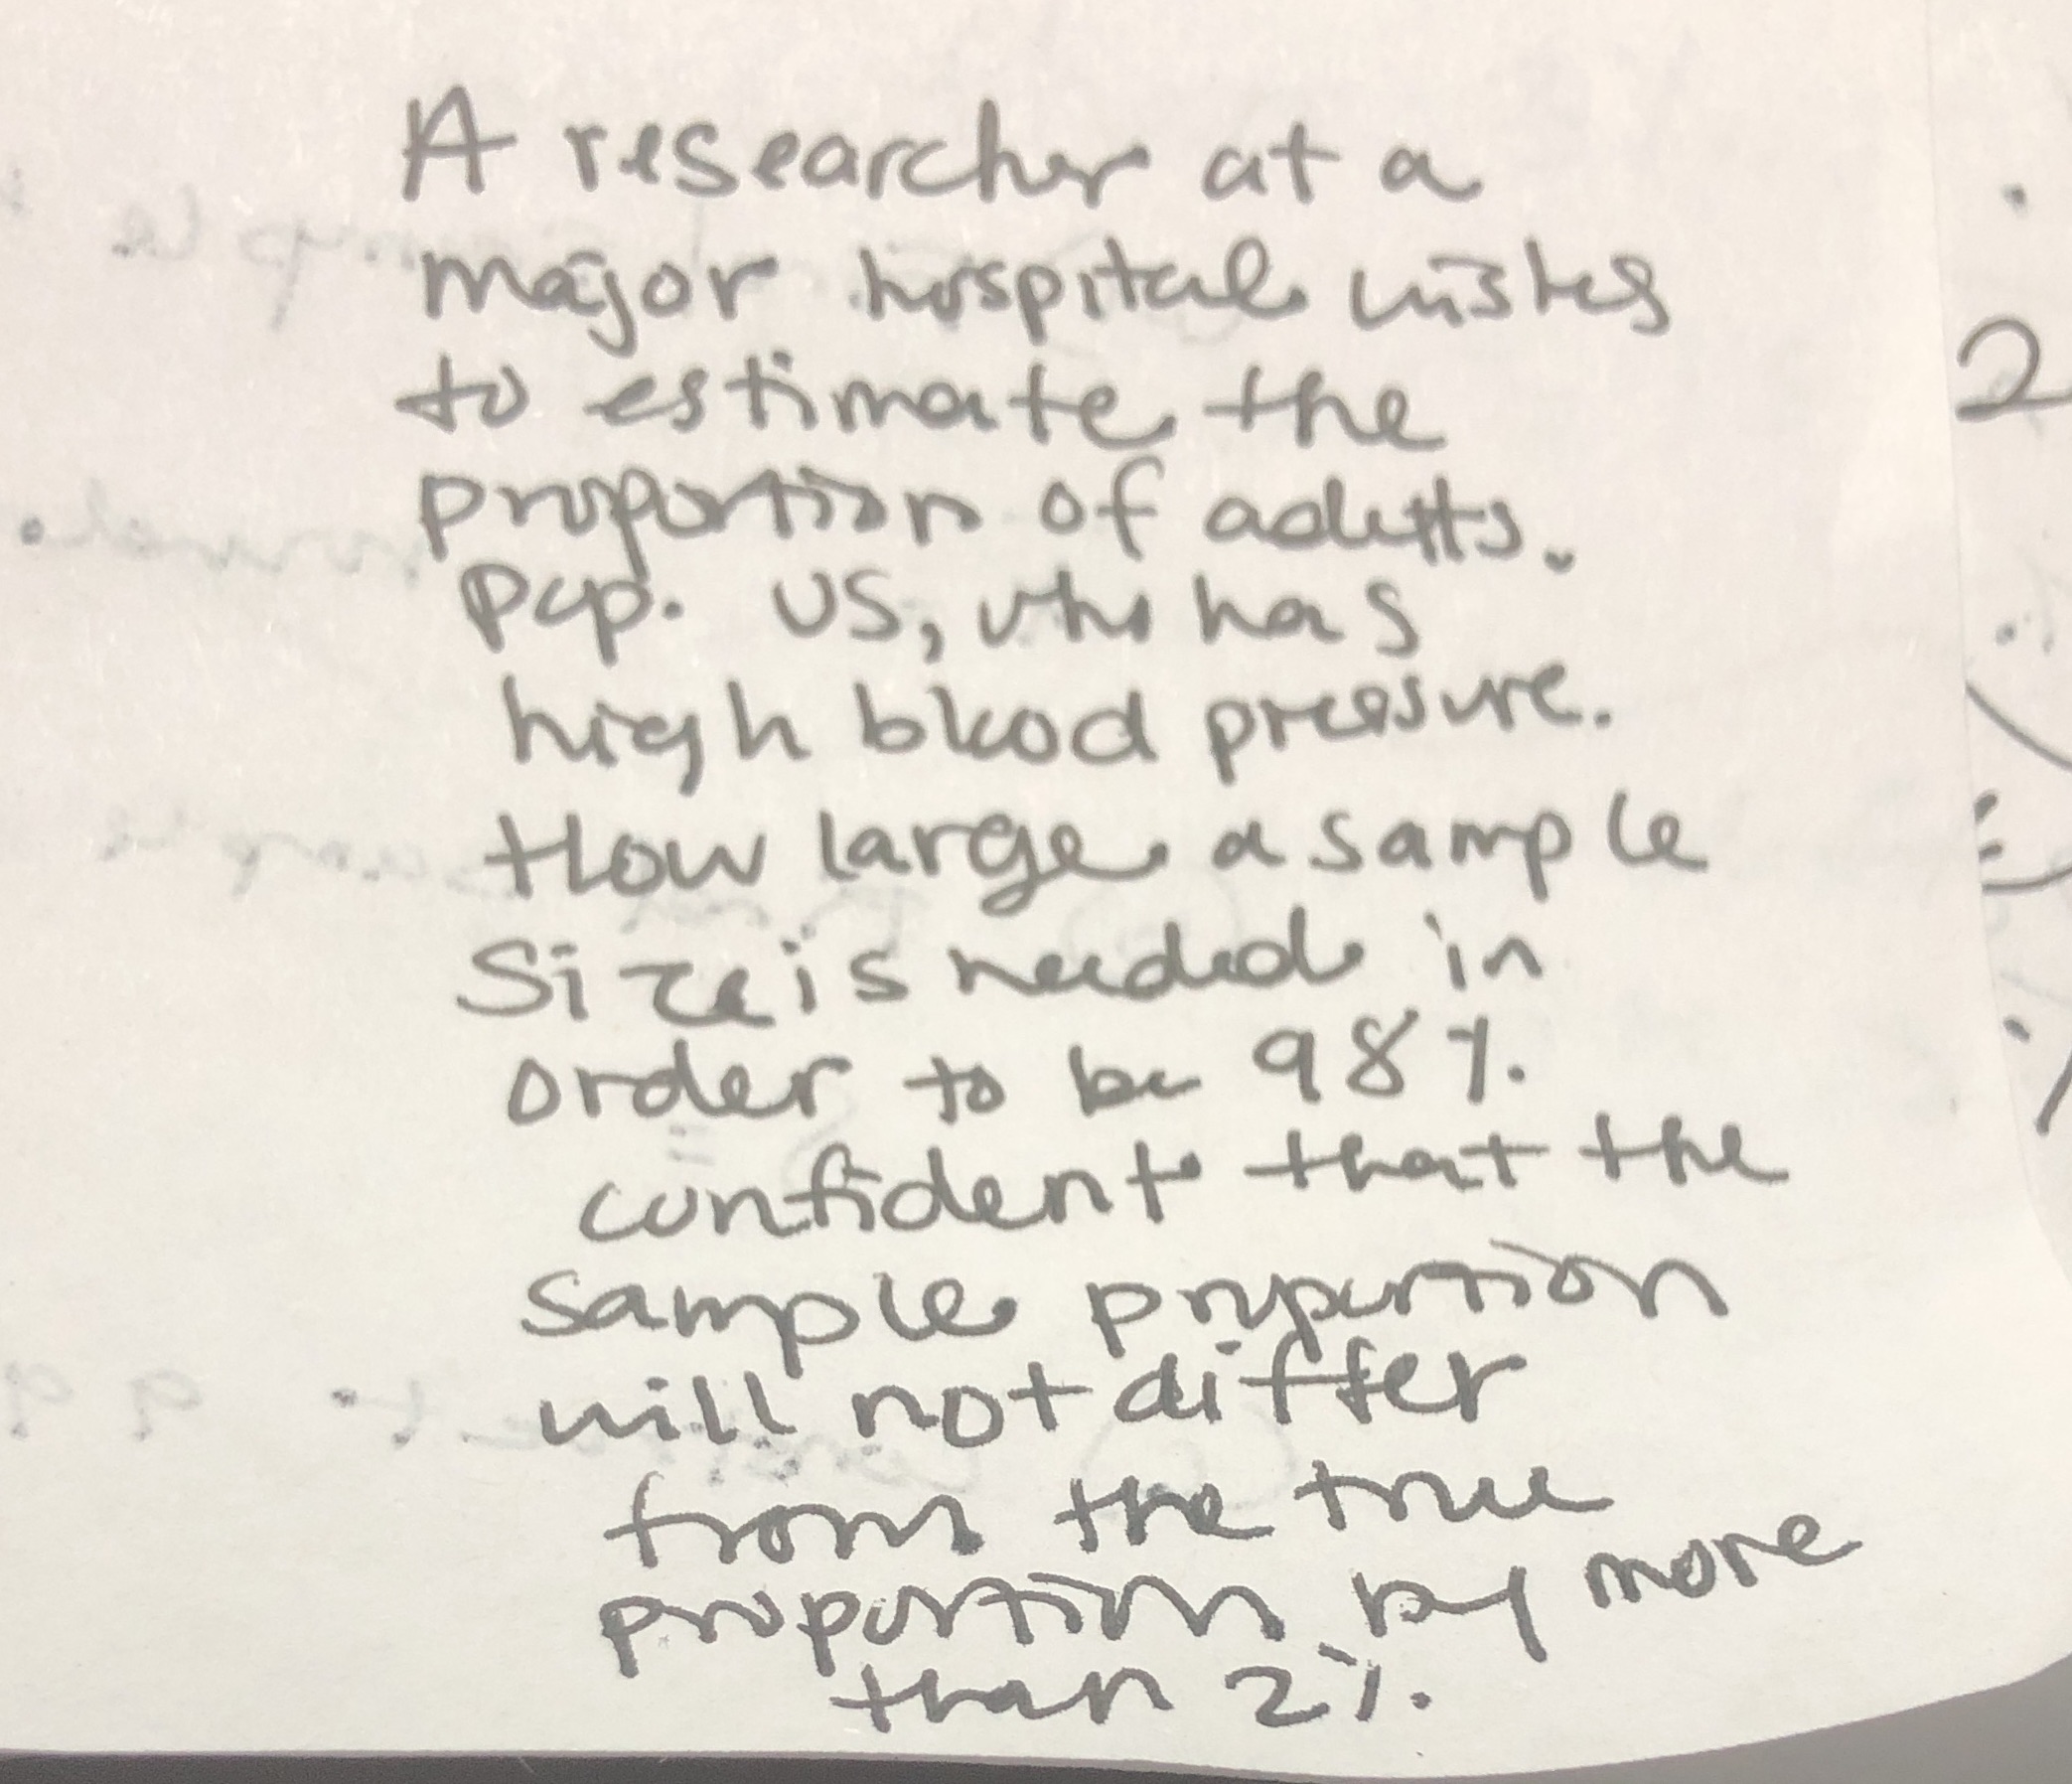 A researcher at a
major hospital wishes
to estimate the
proportion of adults.
pop. US, who has
high blood pressure.
How large a sample
size is needed in
order to be 98%
confident that the
sample proportion
will not differ
from the true
proportion by more
than 2%.
2